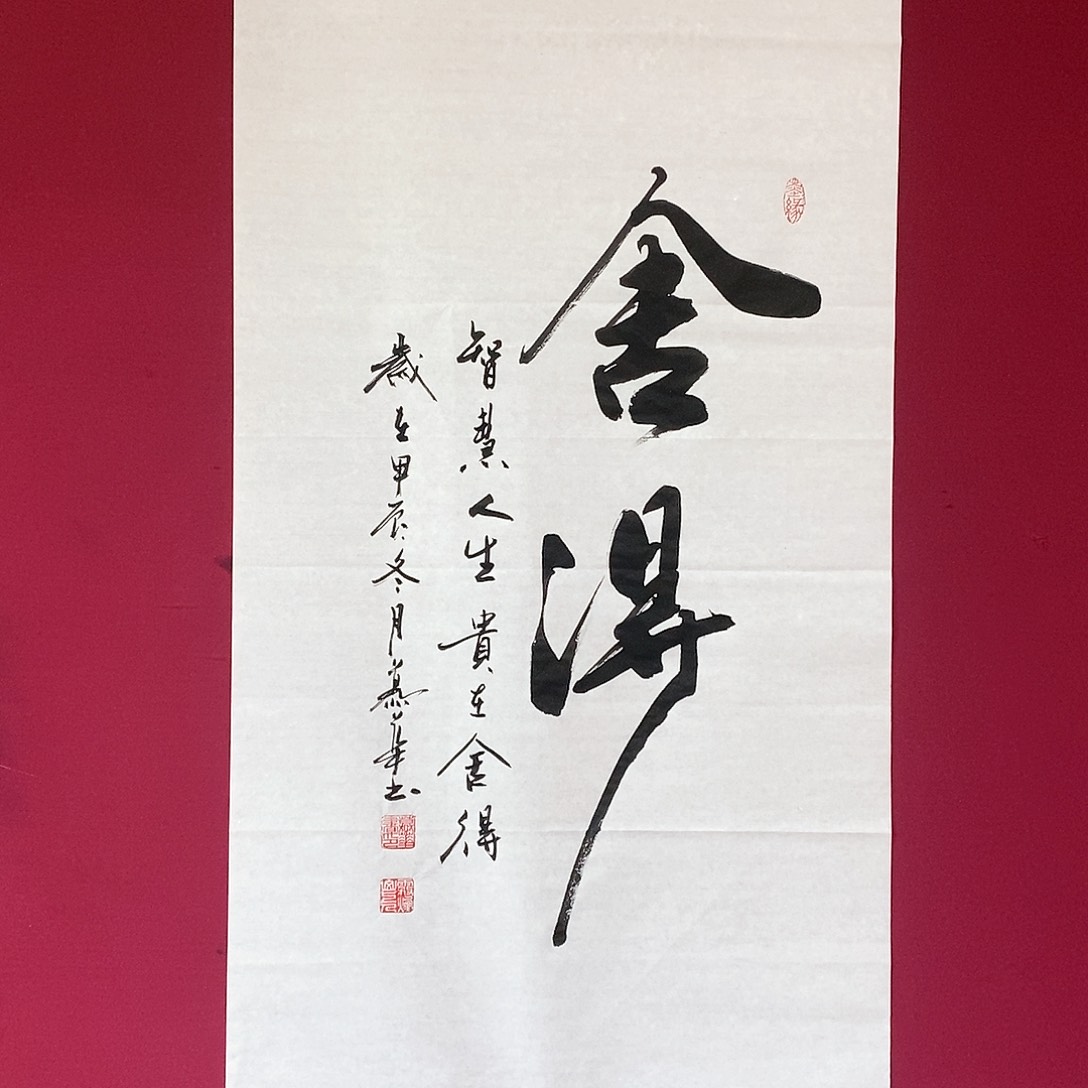 舍得
智慧人生貴在舍得
歲在甲辰冬月慕華书
墨緣